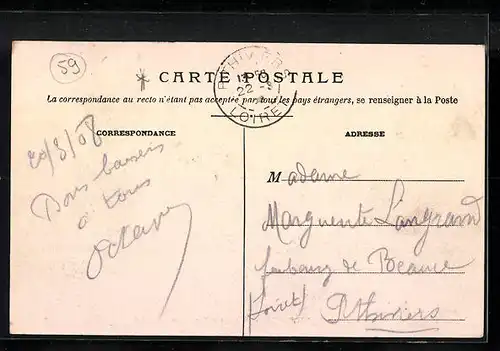 59
CARTE POSTALE
La correspondance au recto n'étant pas acceptée par tous les pays étrangers, se renseigner à la Poste
PITHIVIERS
22 -9
LOIRET
CORRESPONDANCE
ADRESSE
20/8/08
Bons baisers
à tous
Octave
Madame
Marguerite Langrand
faubourg de Beauce
(Loiret) Pithiviers